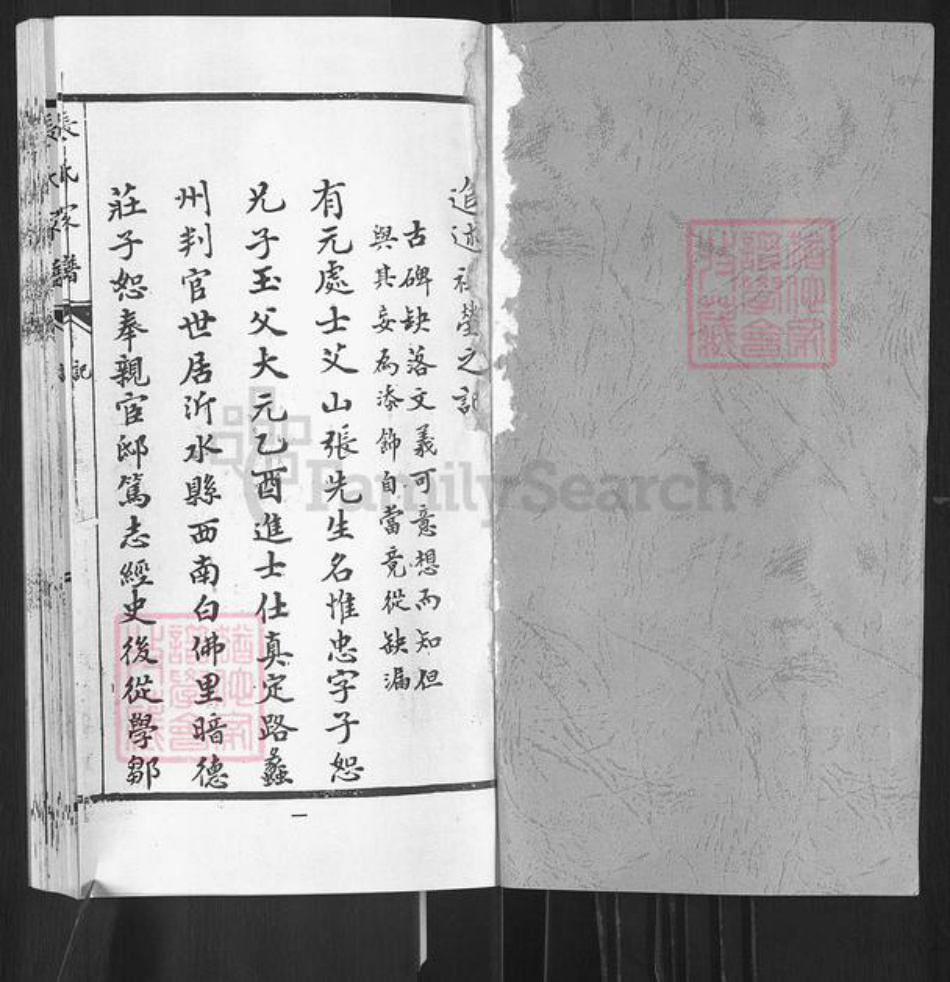 追述祖塋之記
古碑缺落文義可意想而知但
與其妄為添飾自當竟從缺漏
有元處士艾山張先生名惟忠字子恕
兄子玉父大元乙酉進士仕真定路蠡
州判官世居沂水縣西南白佛里暗德
莊子恕奉親宦邸篤志經史後從學鄒
張氏家譜
記
一
FamilySearch